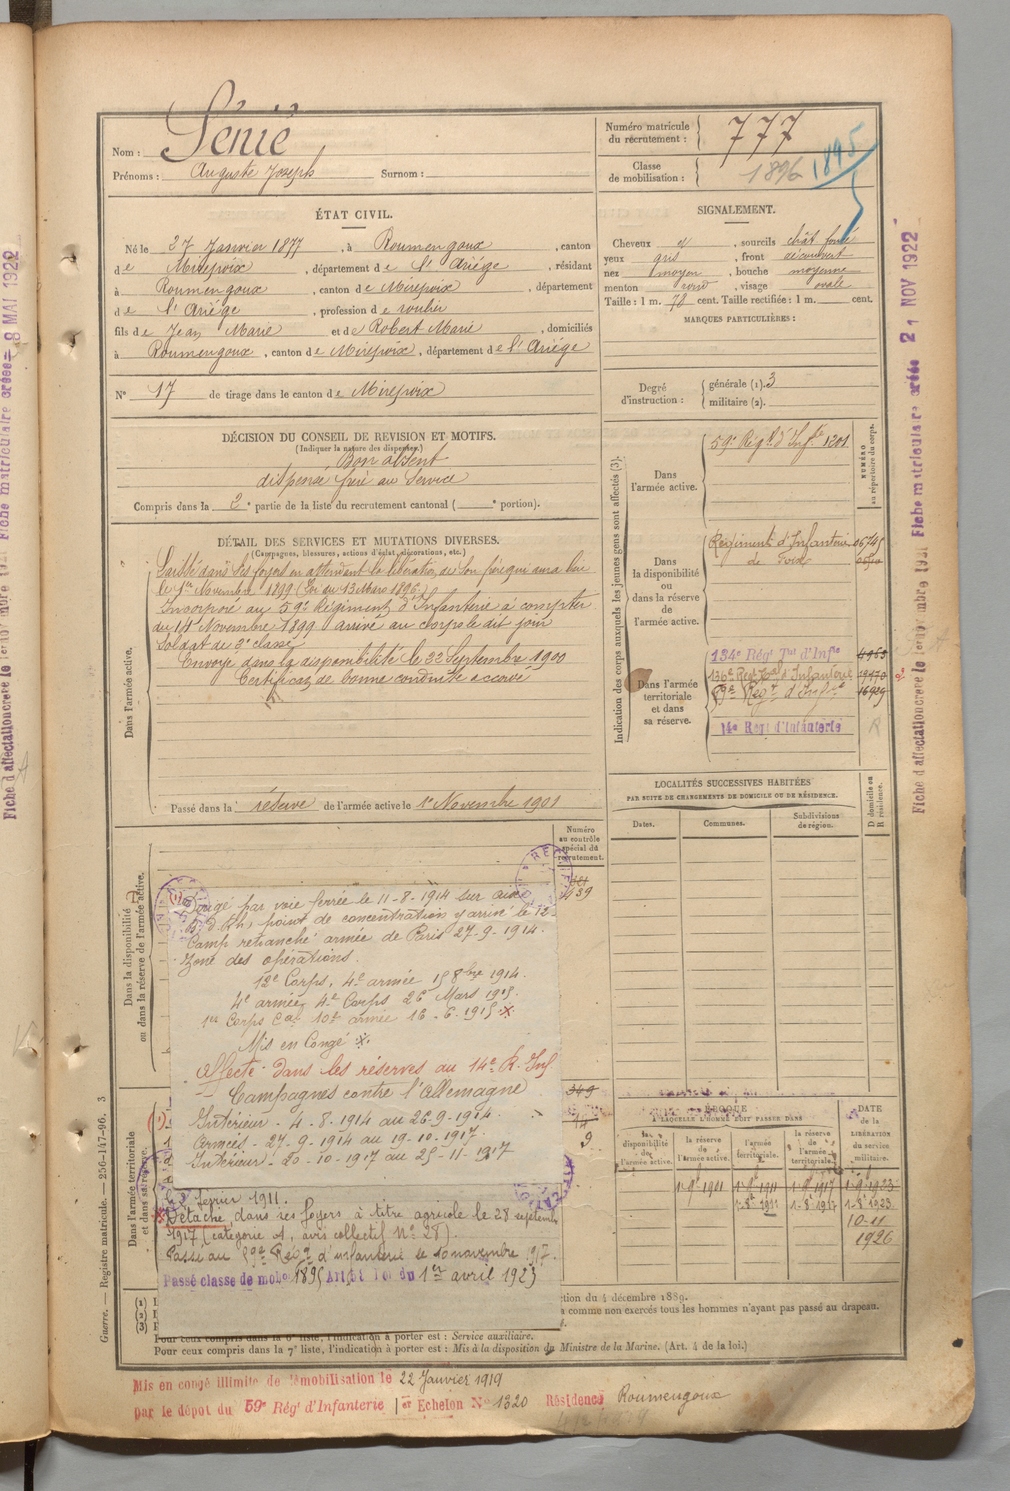 Nom : Sénié
Prénoms : Auguste Joseph Surnom :
Numéro matricule du recrutement : 777
Classe de mobilisation : 1896 1895
ÉTAT CIVIL.
Né le 27 Janvier 1877, à Roumengoux, canton
de Mirepoix, département de l'Ariége, résidant
à Roumengoux, canton de Mirepoix, département
de l'Ariége, profession de
fils de Jean Marie et de Robert Marie, domiciliés
à Roumengoux, canton de Mirepoix, département de l'Ariége
N° 17 de tirage dans le canton de Mirepoix
SIGNALEMENT.
Cheveux et, sourcils chât foncé
yeux gris, front découvert
nez moyen, bouche moyenne
menton rond, visage ovale
Taille : 1 m. 78 cent. Taille rectifiée : 1 m. cent.
MARQUES PARTICULIÈRES :
Degré d'instruction : générale (1). 3
militaire (2).
DÉCISION DU CONSEIL DE REVISION ET MOTIFS.
(Indiquer la nature des dispenses.)
Bon absent
dispensé frère au service
Compris dans la 2e partie de la liste du recrutement cantonal ( e portion).
DÉTAIL DES SERVICES ET MUTATIONS DIVERSES.
(Campagnes, blessures, actions d'éclat, décorations, etc.)
Dans l'armée active.
Laissé dans ses foyers en attendant la libération de son frère qui aura lieu
le 1er Novembre 1899 (Loi du 13 Mars 1896
Incorporé au 59e Régiment d'Infanterie à compter
du 14 Novembre 1899 arrivé au corps le dit jour
Soldat de 2e classe
Envoyé dans la disponibilité le 22 Septembre 1900
Certificat de bonne conduite accordé
Passé dans la réserve de l'armée active le 1er Novembre 1901
Indication des corps auxquels les jeunes gens sont affectés (3).
NUMÉRO au répertoire du corps.
Dans l'armée active.
59e Régt d'Infie 1201
Dans la disponibilité ou dans la réserve de l'armée active.
Régiment d'Infanterie
de Foix
Dans l'armée territoriale et dans sa réserve.
134e Régt Tal d'Infie
136e Régt Tal d'Infanterie
59e Régt d'Infie 16929
14e Régt d'Infanterie
LOCALITÉS SUCCESSIVES HABITÉES
PAR SUITE DE CHANGEMENTS DE DOMICILE OU DE RÉSIDENCE.
Dates. Communes. Subdivisions de région. D domicile ou R résidence.
Numéro au contrôle spécial du recrutement.
Dans la disponibilité ou dans la réserve de l'armée active.
par voie ferrée le 11-8-1914 sur
point de concentration y arrivé le 12-
Camp retranché armée de Paris 27-9-1914.
Zone des opérations.
12e Corps, 4e armée 15 8bre 1914.
4e armée, 4e Corps 26 Mars 1915.
1er Corps Cal 10e armée 16-6-1915
Mis en Congé
Affecté dans les réserves au 14e R. Inf
Campagnes contre l'Allemagne
Intérieur - 4-8-1914 au 26-9-1914.
Armées - 27-9-1914 au 19-10-1917.
Intérieur - 20-10-1917 au 25-11-1917
Dans l'armée territoriale et dans sa réserve.
349
14
9
février 1911.
Détaché, dans ses foyers à titre agricole le 28 septembre
1917 (catégorie A, avis collectif N° 28).
Passé au 59e Régt d'infanterie le 10 novembre 1917.
Passé classe de mobon 1895 Art 51 loi du 1er avril 1923
ÉPOQUE
À LAQUELLE L'HOMME DOIT PASSER DANS
la disponibilité de l'armée active. la réserve de l'armée active. l'armée territoriale. la réserve de l'armée territoriale.
DATE de la LIBÉRATION du service militaire.
1-9bre 1901 1-9bre 1911 1-9bre 1917 1-9bre 1923
1-8bre 1911 1-8bre 1917 1-8bre 1923
10-11
1926
(1)
(2)
(3)
tion du 4 décembre 1889.
a comme non exercés tous les hommes n'ayant pas passé au drapeau.
Pour ceux compris dans la 6e liste, l'indication à porter est : Service auxiliaire.
Pour ceux compris dans la 7e liste, l'indication à porter est : Mis à la disposition du Ministre de la Marine. (Art. 4 de la loi.)
Mis en congé illimité de démobilisation le 22 Janvier 1919
par le dépot du 59e Régt d'Infanterie 1er Echelon N° 1320 Résidence Roumengoux
Guerre. — Registre matricule. — 256-147-96. 3
8 MAI 1922
21 NOV 1922